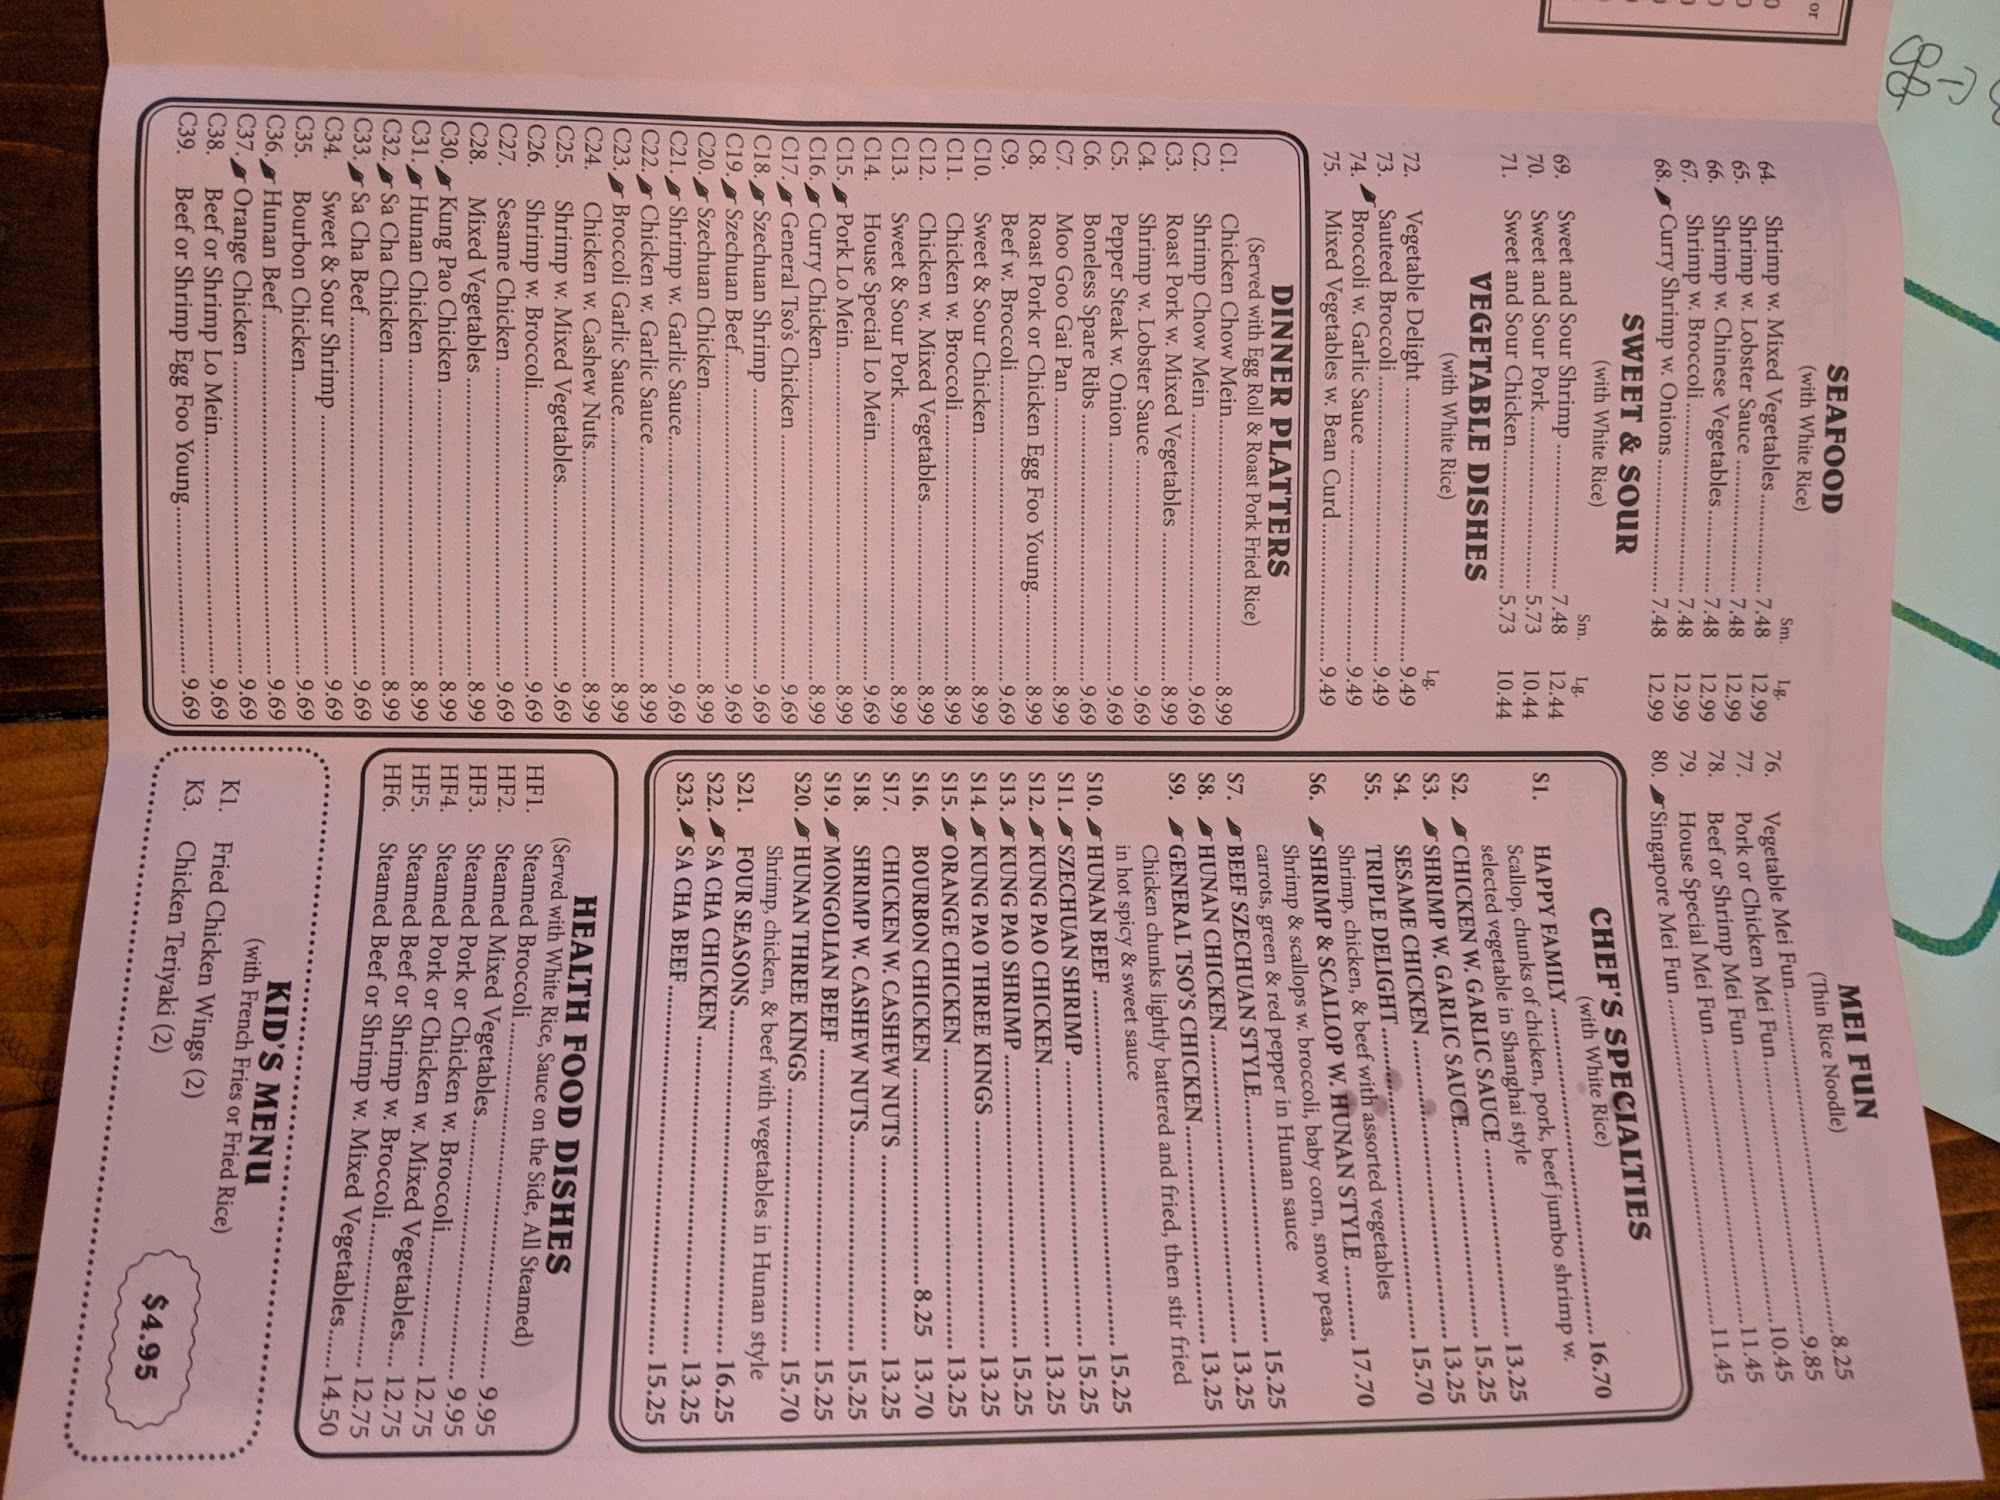 or
SEAFOOD
(with White Rice)
Sm. Lg.
64. Shrimp w. Mixed Vegetables 7.48 12.99
65. Shrimp w. Lobster Sauce 7.48 12.99
66. Shrimp w. Chinese Vegetables 7.48 12.99
67. Shrimp w. Broccoli 7.48 12.99
68. Curry Shrimp w. Onions 7.48 12.99
SWEET & SOUR
(with White Rice)
Sm. Lg.
69. Sweet and Sour Shrimp 7.48 12.44
70. Sweet and Sour Pork 5.73 10.44
71. Sweet and Sour Chicken 5.73 10.44
VEGETABLE DISHES
(with White Rice)
Lg.
72. Vegetable Delight 9.49
73. Sauteed Broccoli 9.49
74. Broccoli w. Garlic Sauce 9.49
75. Mixed Vegetables w. Bean Curd 9.49
DINNER PLATTERS
(Served with Egg Roll & Roast Pork Fried Rice)
C1. Chicken Chow Mein 8.99
C2. Shrimp Chow Mein 9.69
C3. Roast Pork w. Mixed Vegetables 8.99
C4. Shrimp w. Lobster Sauce 9.69
C5. Pepper Steak w. Onion 9.69
C6. Boneless Spare Ribs 9.69
C7. Moo Goo Gai Pan 8.99
C8. Roast Pork or Chicken Egg Foo Young 8.99
C9. Beef w. Broccoli 9.69
C10. Sweet & Sour Chicken 8.99
C11. Chicken w. Broccoli 8.99
C12. Chicken w. Mixed Vegetables 8.99
C13. Sweet & Sour Pork 8.99
C14. House Special Lo Mein 9.69
C15. Pork Lo Mein 8.99
C16. Curry Chicken 8.99
C17. General Tso's Chicken 9.69
C18. Szechuan Shrimp 9.69
C19. Szechuan Beef 9.69
C20. Szechuan Chicken 8.99
C21. Shrimp w. Garlic Sauce 9.69
C22. Chicken w. Garlic Sauce 8.99
C23. Broccoli Garlic Sauce 8.99
C24. Chicken w. Cashew Nuts 8.99
C25. Shrimp w. Mixed Vegetables 9.69
C26. Shrimp w. Broccoli 9.69
C27. Sesame Chicken 9.69
C28. Mixed Vegetables 8.99
C30. Kung Pao Chicken 8.99
C31. Hunan Chicken 8.99
C32. Sa Cha Chicken 8.99
C33. Sa Cha Beef 9.69
C34. Sweet & Sour Shrimp 9.69
C35. Bourbon Chicken 9.69
C36. Hunan Beef 9.69
C37. Orange Chicken 9.69
C38. Beef or Shrimp Lo Mein 9.69
C39. Beef or Shrimp Egg Foo Young 9.69
MEI FUN
(Thin Rice Noodle)
76. Vegetable Mei Fun 8.25
77. Pork or Chicken Mei Fun 9.85
78. Beef or Shrimp Mei Fun 10.45
79. House Special Mei Fun 11.45
80. Singapore Mei Fun 11.45
CHEF'S SPECIALTIES
(with White Rice)
S1. HAPPY FAMILY 16.70
Scallop, chunks of chicken, pork, beef jumbo shrimp w.
selected vegetable in Shanghai style
S2. CHICKEN W. GARLIC SAUCE 13.25
S3. SHRIMP W. GARLIC SAUCE 15.25
S4. SESAME CHICKEN 13.25
S5. TRIPLE DELIGHT 15.70
Shrimp, chicken, & beef with assorted vegetables
S6. SHRIMP & SCALLOP W. HUNAN STYLE 17.70
Shrimp & scallops w. broccoli, baby corn, snow peas,
carrots, green & red pepper in Hunan sauce
S7. BEEF SZECHUAN STYLE 15.25
S8. HUNAN CHICKEN 13.25
S9. GENERAL TSO'S CHICKEN 13.25
Chicken chunks lightly battered and fried, then stir fried
in hot spicy & sweet sauce
S10. HUNAN BEEF 15.25
S11. SZECHUAN SHRIMP 15.25
S12. KUNG PAO CHICKEN 13.25
S13. KUNG PAO SHRIMP 15.25
S14. KUNG PAO THREE KINGS 13.25
S15. ORANGE CHICKEN 13.25
S16. BOURBON CHICKEN 8.25 13.70
S17. CHICKEN W. CASHEW NUTS 13.25
S18. SHRIMP W. CASHEW NUTS 15.25
S19. MONGOLIAN BEEF 15.25
S20. HUNAN THREE KINGS 15.70
Shrimp, chicken, & beef with vegetables in Hunan style
S21. FOUR SEASONS 16.25
S22. SA CHA CHICKEN 13.25
S23. SA CHA BEEF 15.25
HEALTH FOOD DISHES
(Served with White Rice, Sauce on the Side, All Steamed)
HF1. Steamed Broccoli 9.95
HF2. Steamed Mixed Vegetables 9.95
HF3. Steamed Pork or Chicken w. Broccoli 12.75
HF4. Steamed Pork or Chicken w. Mixed Vegetables 12.75
HF5. Steamed Beef or Shrimp w. Broccoli 12.75
HF6. Steamed Beef or Shrimp w. Mixed Vegetables 14.50
KID'S MENU
(with French Fries or Fried Rice)
K1. Fried Chicken Wings (2)
K3. Chicken Teriyaki (2)
$4.95